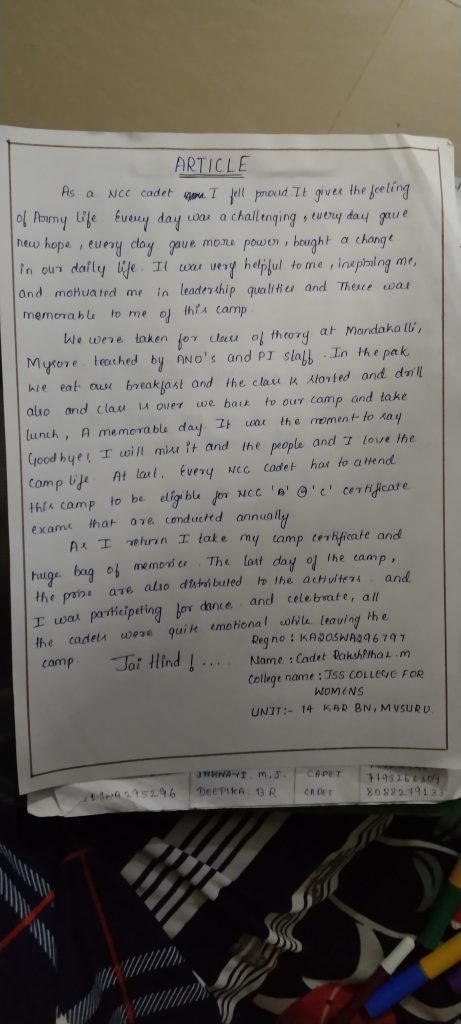 ARTICLE
As a NCC cadet I fell proud. It gives the feeling
of Army Life. Every day was a challenging, every day gave
new hope, every day gave more power, bought a change
in our daily life. It was very helpful to me, inspiring me,
and motivated me in leadership qualities and There was
memorable to me of this camp.
We were taken for class of theory at Mandakalli,
Mysore. teached by ANO's and PI staff. In the
we eat our breakfast and the class is started and drill
also and class is over we back to our camp and take
lunch, A memorable day. It was the moment to say
Goodbye! I will miss it and the people and I love the
camp life. At last, Every NCC cadet has to attend
this camp to be eligible for NCC 'B' @ 'C' certificate
exams that are conducted annually
As I return I take my camp certificate and
huge bag of memories. The last day of the camp,
the prize are also distributed to the activiters. and
I was participeting for dance and celebrate, all
the cadets were quite emotional while leaving the
camp. Jai Hind! ....
Regno: KA20SWA296797
Name: Cadet Rakshitha L.M
College name: JSS COLLEGE FOR
WOMENS
UNIT:- 14 KAR BN, MYSURU.
M.J. CADET 7795266309
295296 DEEPIKA. B R CADET 8088279133